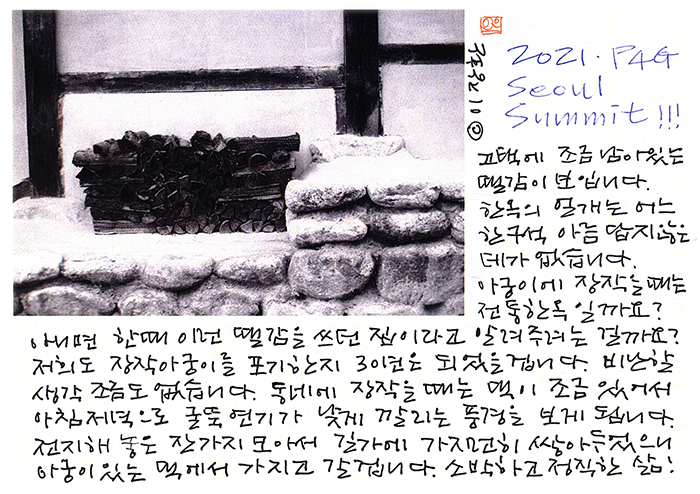 2021. P4G
Seoul
Summit!!!
고택에 조금 남아있는
땔감이 보입니다.
한옥의 얼개는 어느
한구석 아름답지않은
데가 없습니다.
아궁이에 장작을 때는
전통한옥일까요?
아니면 한때 이런 땔감을 쓰던 집이라고 알려주려는 걸까요?
저희도 장작아궁이를 포기한지 30년은 되었을겁니다. 비난할
생각 조금도 없습니다. 동네에 장작을 때는 댁이 조금 있어서
아침저녁으로 굴뚝연기가 낮게 깔리는 풍경을 보게 됩니다.
전지해 놓은 잔가지 모아서 길가에 가지런히 쌓아두었으니
아궁이 있는 댁에서 가지고 갈겁니다. 소박하고 정직한 삶!